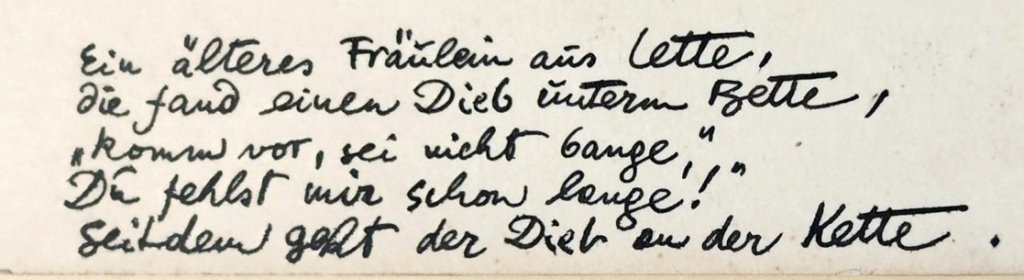 Ein älteres Fräulein aus Lette,
die fand einen Dieb unterm Bette,
„Komm vor, sei nicht bange,"
Du fehlst mir schon lange!"
Seitdem geht der Dieb an der Kette.